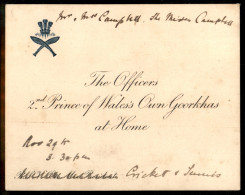 Mr & Mrs Campbell. The Misses Campbell
The Officers
2nd Prince of Wales's Own Goorkhas
at Home
Nov 29th
3.30 pm
Cricket & Tennis